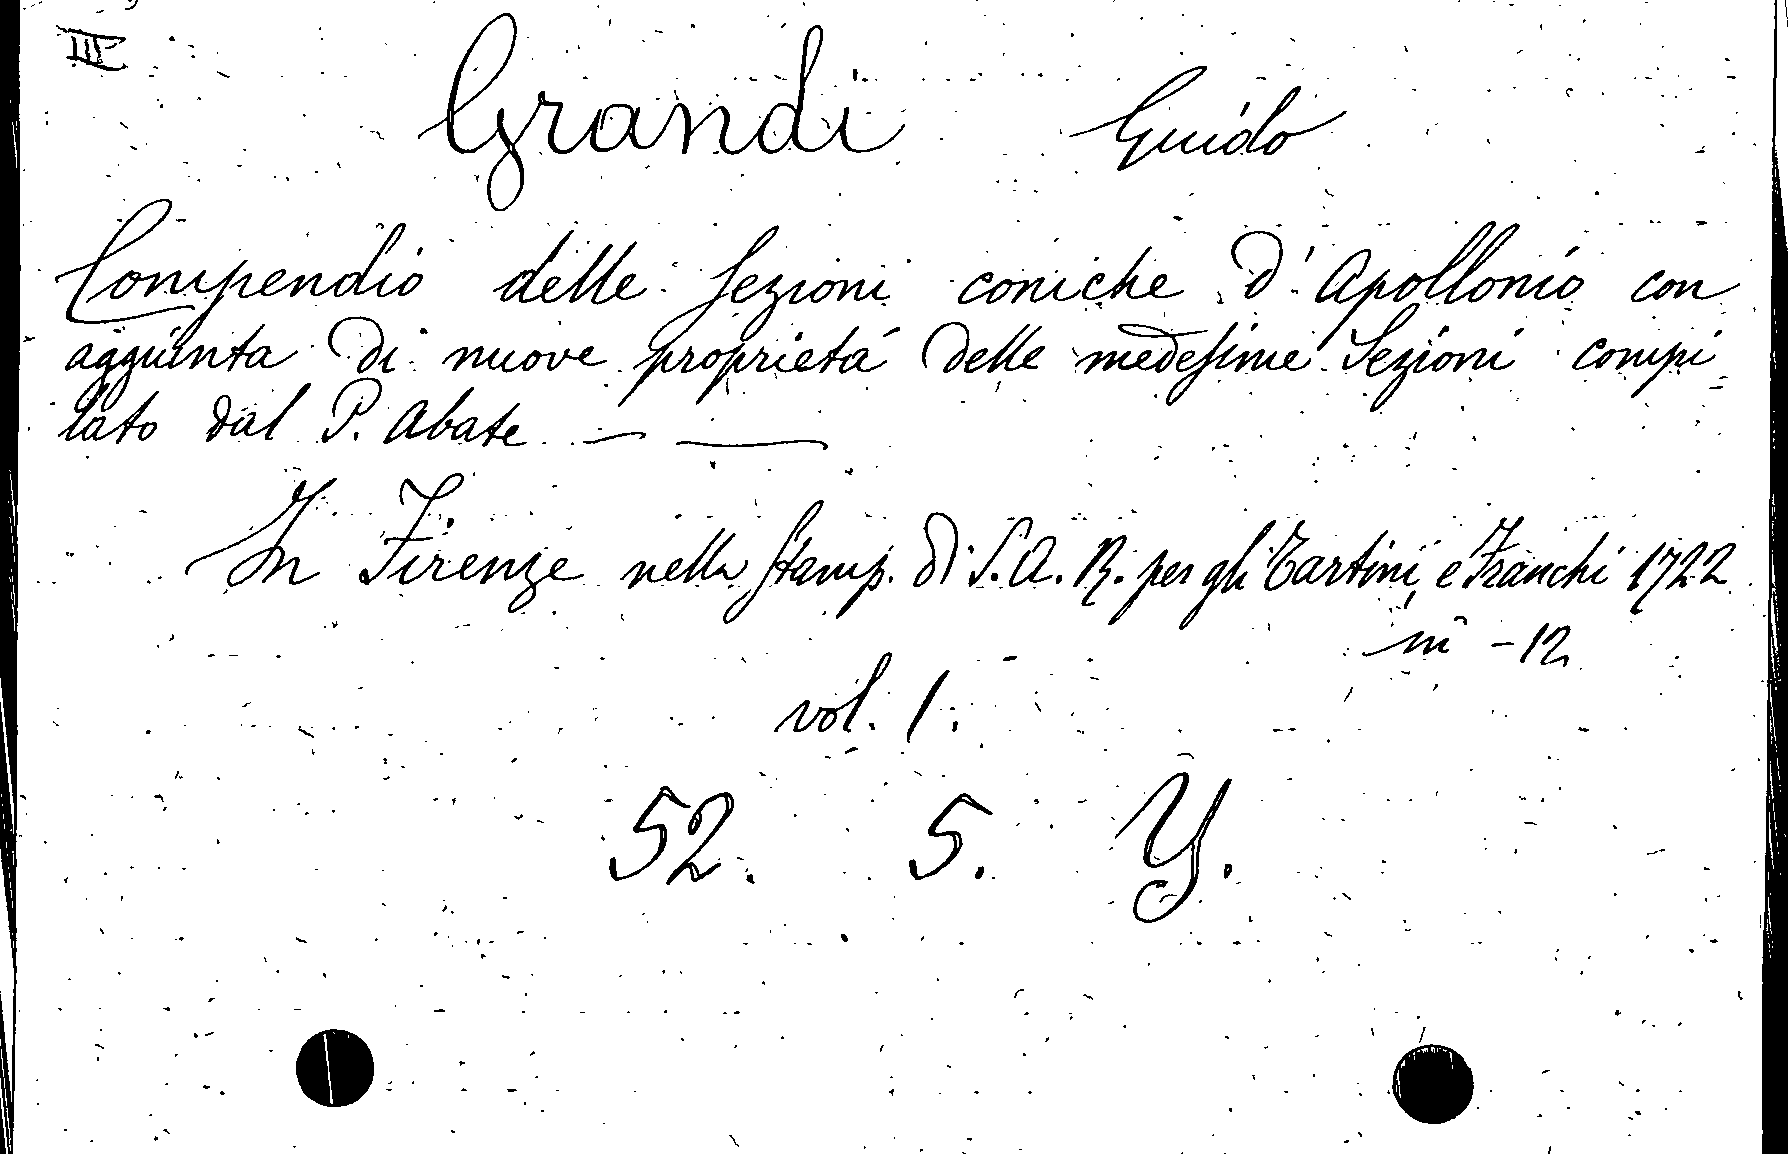 III
Grandi Guido
Compendio delle Sezioni coniche d'Apollonio con
aggiunta di nuove proprietá delle medesime Sezioni compi
lato dal P. Abate — —
In Firenze nella Stamp. di S. A. R. per gli Tartini, e Franchi 1722
in - 12
vol. 1.
52. 5. Y.